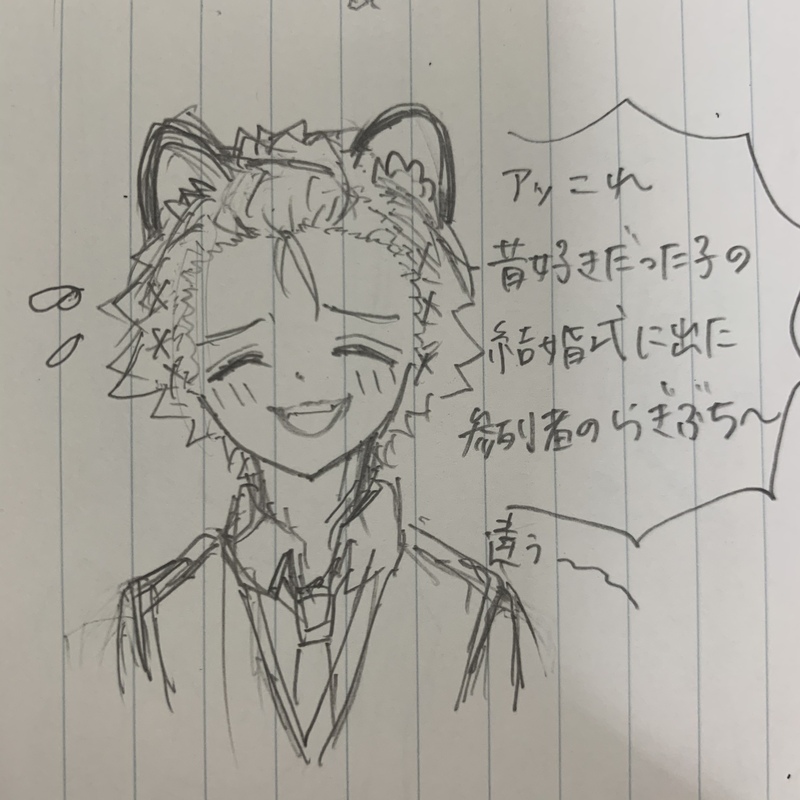 アッこれ
昔好きだった子の
結婚式に出た
参列者のらぎぶち〜
違う